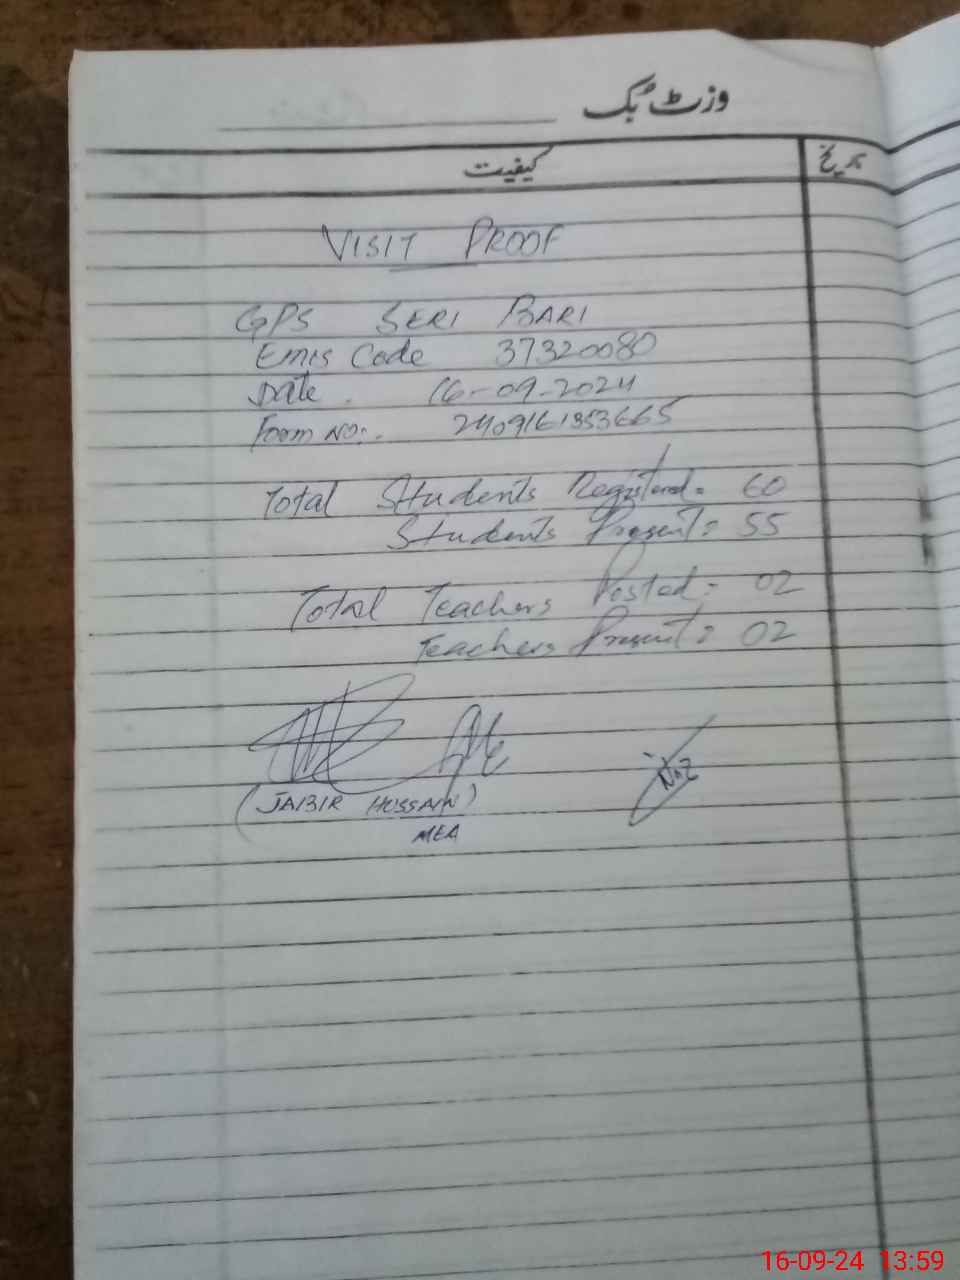 وزٹ بُک
کیفیت
تاریخ
VISIT PROOF
GPS SERI BARI
Emis Code 37320080
Date . 16-09-2024
Form NO:. 2409161353665
Total Students Registered = 60
Students Present = 55
Total Teachers Posted = 02
Teachers Present = 02
(JABIR HUSSAIN)
MEA
16-09-24 13:59